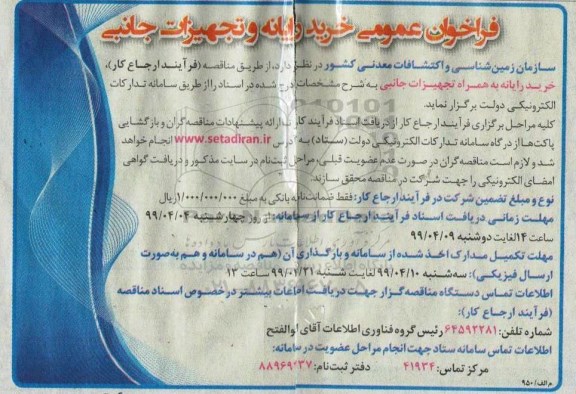 فراخوان عمومی خرید رایانه و تجهیزات جانبی
سازمان زمین‌شناسی و اکتشافات معدنی کشور در نظر دارد، از طریق مناقصه (فرآیند ارجاع کار)،
خرید رایانه به همراه تجهیزات جانبی به شرح مشخصات درج شده در اسناد را از طریق سامانه تدارکات
الکترونیکی دولت برگزار نماید.
کلیه مراحل برگزاری فرآیند ارجاع کار از دریافت اسناد فرآیند کار تا ارائه پیشنهادات مناقصه‌گران و بازگشایی
پاکت‌ها از درگاه سامانه تدارکات الکترونیکی دولت (ستاد) به آدرس www.setadiran.ir انجام خواهد
شد و لازم است مناقصه‌گران در صورت عدم عضویت قبلی، مراحل ثبت‌نام در سایت مذکور و دریافت گواهی
امضای الکترونیکی را جهت شرکت در مناقصه محقق سازند.
نوع و مبلغ تضمین شرکت در فرآیند ارجاع کار: فقط ضمانت‌نامه بانکی به مبلغ ۱/۰۰۰/۰۰۰/۰۰۰ ریال
مهلت زمانی دریافت اسناد فرآیند ارجاع کار از سامانه: از روز چهارشنبه ۹۹/۰۴/۰۴
ساعت ۱۴ لغایت دوشنبه ۹۹/۰۴/۰۹
مهلت تکمیل مدارک اخذ شده از سامانه و بارگذاری آن (هم در سامانه و هم به‌صورت
ارسال فیزیکی): سه‌شنبه ۹۹/۰۴/۱۰ لغایت شنبه ۹۹/۰۴/۲۱ ساعت ۱۲
اطلاعات تماس دستگاه مناقصه‌گزار جهت دریافت اطلاعات بیشتر در خصوص اسناد مناقصه
(فرآیند ارجاع کار):
شماره تلفن: ۶۴۵۹۲۲۸۱ رئیس گروه فناوری اطلاعات آقای ابوالفتح
اطلاعات تماس سامانه ستاد جهت انجام مراحل عضویت در سامانه:
مرکز تماس: ۴۱۹۳۴ دفتر ثبت‌نام: ۸۸۹۶۹۷۳۷
م الف/۹۵۰